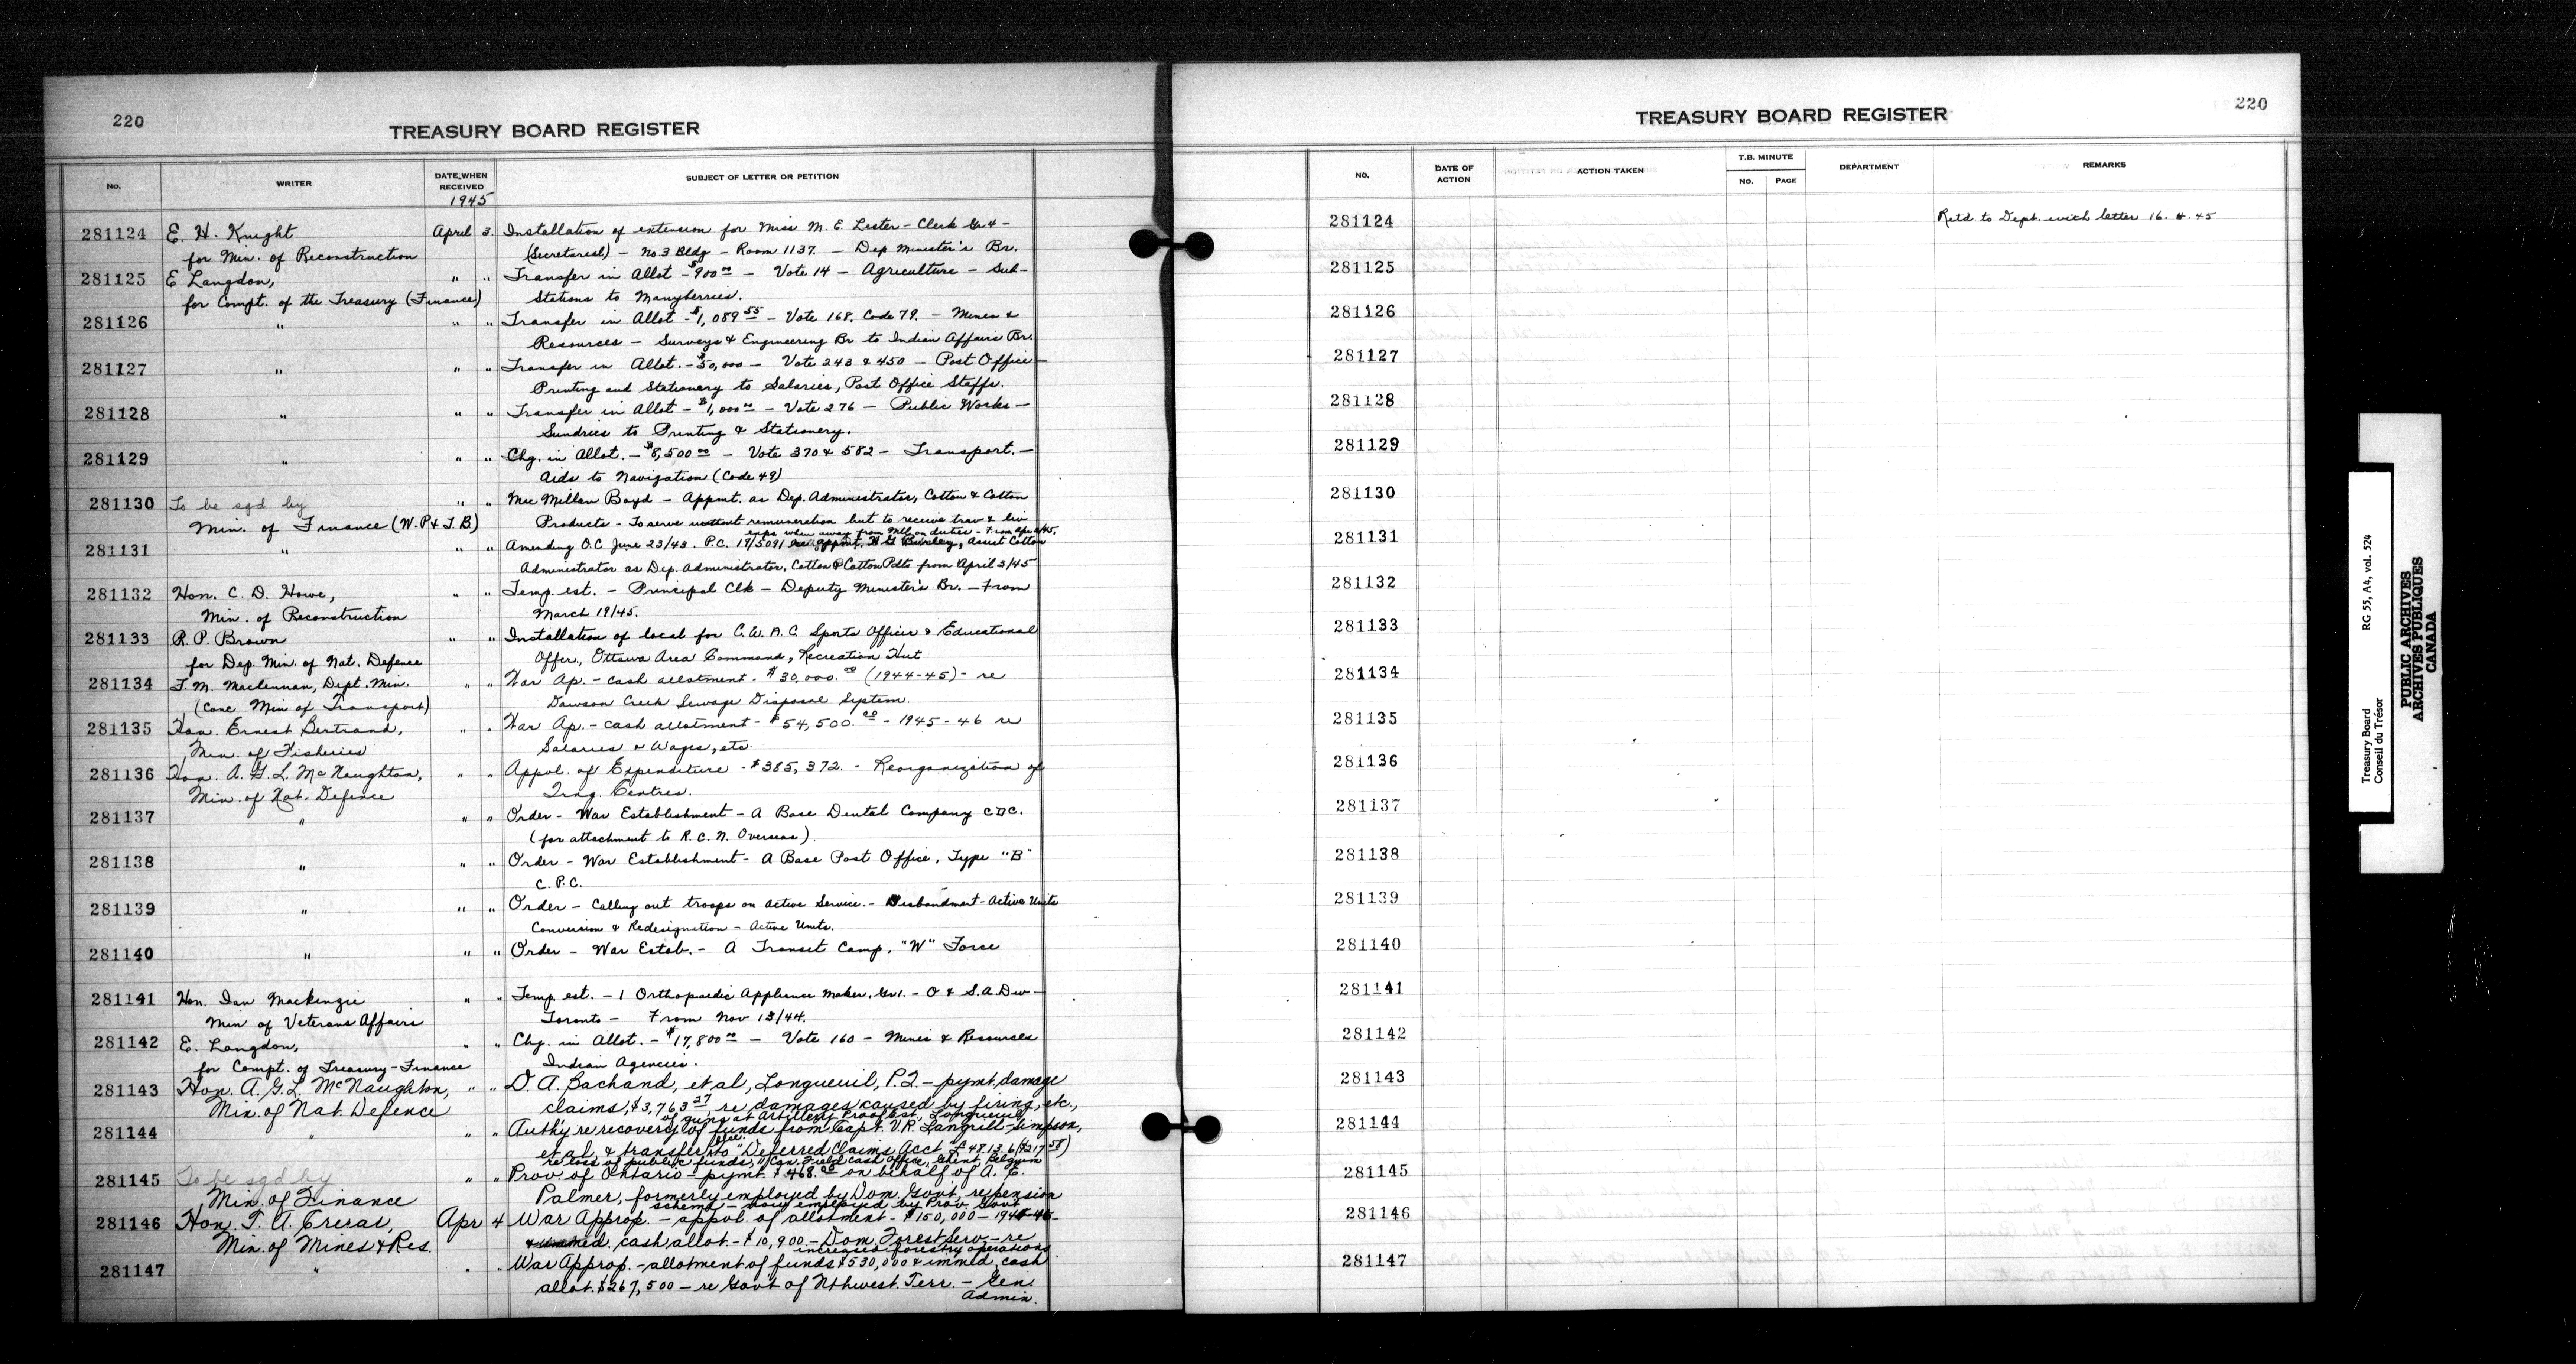 220
TREASURY BOARD REGISTER
No.
WRITER
DATE WHEN RECEIVED
1945
SUBJECT OF LETTER OR PETITION
281124 E. H. Knight April 3. Installation of extension for Miss M. E. Lester - Clerk Gr 4 -
for Min. of Reconstruction (Secretarial) - No 3 Bldg - Room 1137. - Dep Minister's Br.
281125 E Langdon, " " Transfer in Allot - $900 00 - Vote 14 - Agriculture - Sub-
for Compt. of the Treasury (Finance) Stations to Manyberries.
281126 " " " Transfer in Allot - $1,089 55 - Vote 168, Code 79. - Mines &
Resources - Surveys & Engineering Br to Indian Affairs Br.
281127 " " " Transfer in Allot. - $50,000 - Vote 243 & 450 - Post Office -
Printing and Stationery to Salaries, Post Office Staffs.
281128 " " " Transfer in Allot - $1,000 00 - Vote 276 - Public Works -
Sundries to Printing & Stationery.
281129 " " " Chg. in Allot. - $8,500 00 - Vote 370 & 582 - Transport. -
Aids to Navigation (Code 49)
281130 To be sgd by " " MacMillan Boyd - Appmt. as Dep. Administrator, Cotton & Cotton
Min. of Finance (W.P. & T.B) Products - To serve without remuneration but to receive trav & liv
exps when away from Mtl on duties - From Apr 3/45.
281131 " " " Amending O.C June 23/43. P.C. 17/5091 appmt. Assist Cotton
Administrator as Dep. Administrator, Cotton & Cotton Pdts from April 3/45
281132 Hon. C. D. Howe, " " Temp. est. - Principal Clk - Deputy Minister's Br. - From
Min. of Reconstruction March 19/45.
281133 R. P. Brown " " Installation of local for C.W.A.C. Sports Officer & Educational
for Dep. Min. of Nat. Defence Offcr, Ottawa Area Command, Recreation Hut
281134 F. M. Maclennan, Dept. Min. " " War Ap. - cash allotment - $30,000. 00 (1944-45) - re
(Conc Min of Transport) Dawson Creek Sewage Disposal System.
281135 Hon. Ernest Bertrand, " " War Ap. - cash allotment - $54,500. 00 - 1945-46 re
Min. of Fisheries Salaries & Wages, etc.
281136 Hon. A. G. L. McNaughton, " " Appvl. of Expenditure - $385,372. - Reorganization of
Min. of Nat. Defence Trng. Centres.
281137 " " " Order - War Establishment - A Base Dental Company C.D.C.
(for attachment to R.C.N. Overseas)
281138 " " " Order - War Establishment - A Base Post Office, Type "B"
C.P.C.
281139 " " " Order - Calling out troops on Active Service. - Disbandment - Active Units
Conversion & Redesignation - Active Units.
281140 " " " Order - War Estab. - A Transit Camp, "W" Force
281141 Hon. Ian Mackenzie " " Temp. est. - 1 Orthopaedic Appliance Maker, Gr 1. - O & S.A. Div -
Min of Veterans Affairs Toronto - From Nov 13/44.
281142 E. Langdon, " " Chg. in Allot. - $17,800 00 - Vote 160 - Mines & Resources
for Compt. of Treasury - Finance Indian Agencies.
281143 Hon. A. G. L. McNaughton, " " D. A. Bachand, et al, Longueuil, P.Q. - pymt, damage
Min. of Nat. Defence claims, $3,763 27, re damages caused by firing, etc.,
of guns at Artillery Proof Est., Longueuil
281144 " " " Auth'y re recovery of funds from Capt. V.R. Langrill-Simpson,
et al, & transfer to "Deferred Claims Acct" £48.13.6 ($217 58)
re loss of public funds, Cdn. Field Cash Office, Ghent, Belgium
281145 To be sgd by " " Prov. of Ontario - pymt. $468. 00 on behalf of A. E.
Min. of Finance Palmer, formerly employed by Dom. Govt, re pension
scheme - now employed by Prov. Govt
281146 Hon. T. A. Crerar, Apr 4 War Approp. - appvl. of allotment - $150,000 - 1945-46 -
Min. of Mines & Res. & immed. cash allot. - $10,900 - Dom. Forest Serv. - re
increased forestry operations
281147 " " " War Approp. - allotment of funds $530,000 & immed. cash
allot. $267,500 - re Govt of Nthwest. Terr. - Gen.
Admin.
TREASURY BOARD REGISTER
220
No.
DATE OF ACTION
ACTION TAKEN
T.B. MINUTE
No.
PAGE
DEPARTMENT
REMARKS
281124 Retd to Dept. with letter 16. 4. 45
281125
281126
281127
281128
281129
281130
281131
281132
281133
281134
281135
281136
281137
281138
281139
281140
281141
281142
281143
281144
281145
281146
281147
Treasury Board
Conseil du Trésor
RG 55, A4, vol. 524
PUBLIC ARCHIVES
ARCHIVES PUBLIQUES
CANADA